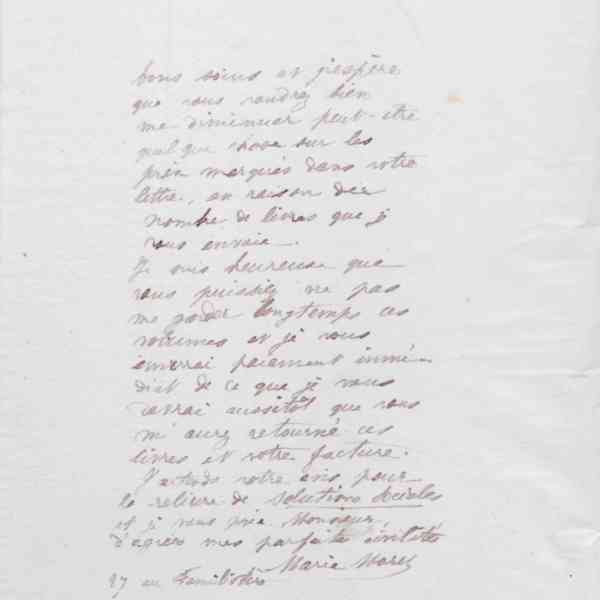 bons soins et j'espère
que vous voudrez bien
me diminuer peut-être
quelque chose sur les
prix marqués dans votre
lettre, en raison du
nombre de livres que je
vous envoie.
Je suis heureuse que
vous puissiez ne pas
me garder longtemps ces
volumes et je vous
enverrai paiement immé-
diat de ce que je vous
devrai aussitôt que vous
m'aurez retourné ces
livres et votre facture.
J'attends votre avis pour
la reliure de Solutions sociales
et je vous prie, Monsieur,
d'agréer mes parfaites civilités
Marie Moret
27 au Familistère